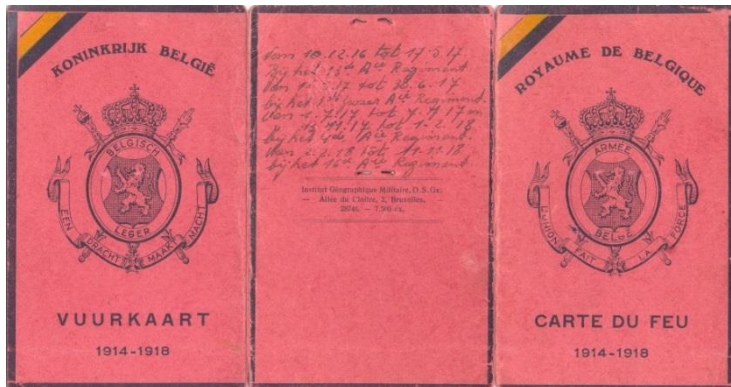 KONINKRIJK BELGIË
BELGISCH
LEGER
EEN DRACHT MAAKT MACHT
VUURKAART
1914-1918
Van 10.12.16 tot 17.5.17.
bij het 13de Aie Regiment
Van tot 6.17
bij het Aie Regiment.
Van 1.7.17 tot 7.7.17 en
tot 1.2.18.
bij het 4de Aie Regiment.
Van 2.2.18 tot 11.11.18
bij het Aie Regiment.
Institut Géographique Militaire, D.S.Gx.
— Allée du Cloître, 2, Bruxelles. —
— 7.500 ex.
ROYAUME DE BELGIQUE
ARMEE
BELGE
L'UNION FAIT LA FORCE
CARTE DU FEU
1914-1918